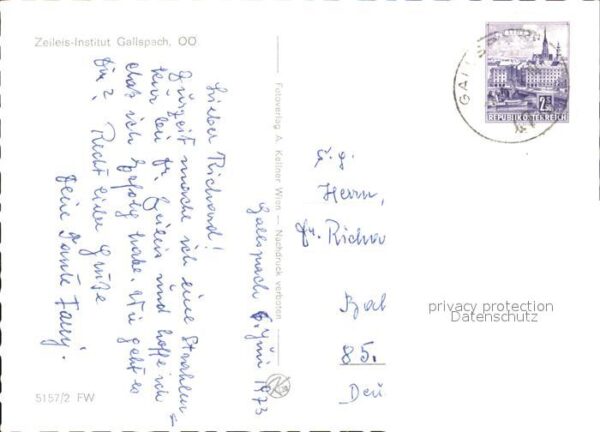 Zeileis-Institut Gallspach, OÖ
Gallspach 6. Juni 1973
Lieber Richard!
Zurzeit mache ich eine Strahlen=
kur bei Dr. Zeileis und hoffe ich
daß ich Erfolg habe. Wie geht es
Dir? Recht liebe Grüße
Deine Tante Fanny.
Fotoverlag A. Kellner Wien — Nachdruck verboten
5157/2 FW
GALL
2S
REPUBLIK ÖSTERREICH
Herrn,
Dr. Richar
85.
Deu
privacy protection
Datenschutz